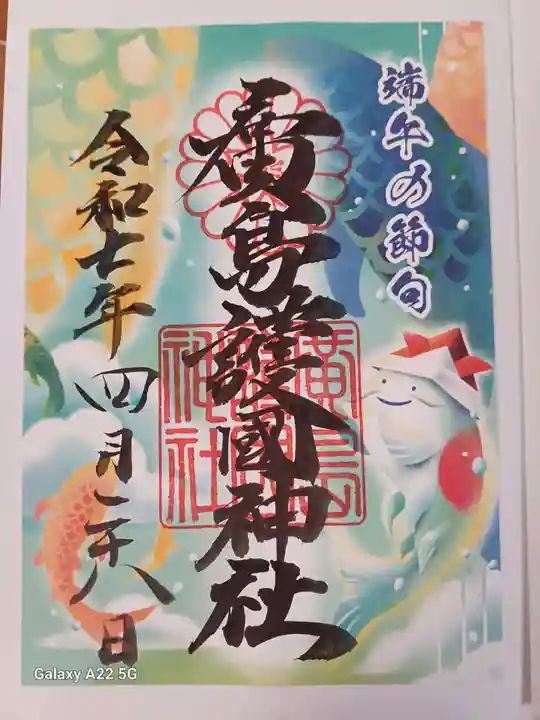 端午の節句
廣島護國神社
令和七年四月二十八日
廣島
護國
神社
Galaxy A22 5G